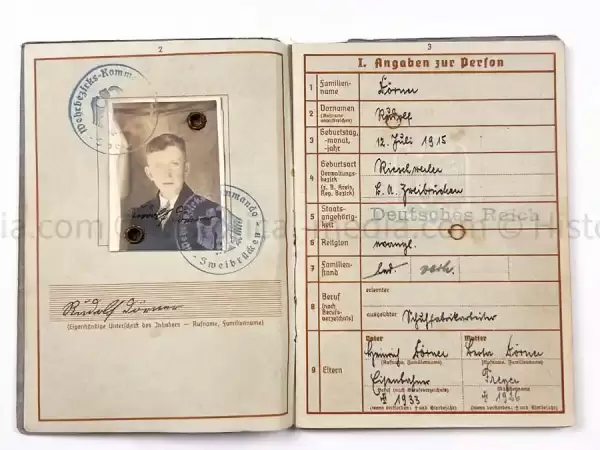 2
Wehrbezirks-Komm
mmando
Zweibrücken
Rudolf Dörner
(Eigenhändige Unterschrift des Inhabers — Rufname, Familienname)
3
I. Angaben zur Person
1 Familienname Dörner
2 Vornamen (Rufname unterstreichen) Rudolf
3 Geburtstag, -monat, -jahr 12. Juli 1915
4 Geburtsort Rieschweiler
Verwaltungsbezirk (z. B. Kreis, Reg. Bezirk) B. A. Zweibrücken
5 Staatsangehörigkeit Deutsches Reich
6 Religion evangl.
7 Familienstand led. verh.
8 Beruf (nach Berufsverzeichnis) erlernter
ausgeübter Schuhfabrikarbeiter
9 Eltern
Vater Mutter
Heinrich Dörner Berta Dörner
(Rufname, Familienname) (Rufname, Familienname)
Eisenbahner
Beruf (nach Berufsverzeichnis) Mädchenname
1933 1926
(wenn verstorben: † und Sterbejahr) (wenn verstorben: † und Sterbejahr)
media.com © Historical-media.com © Histo